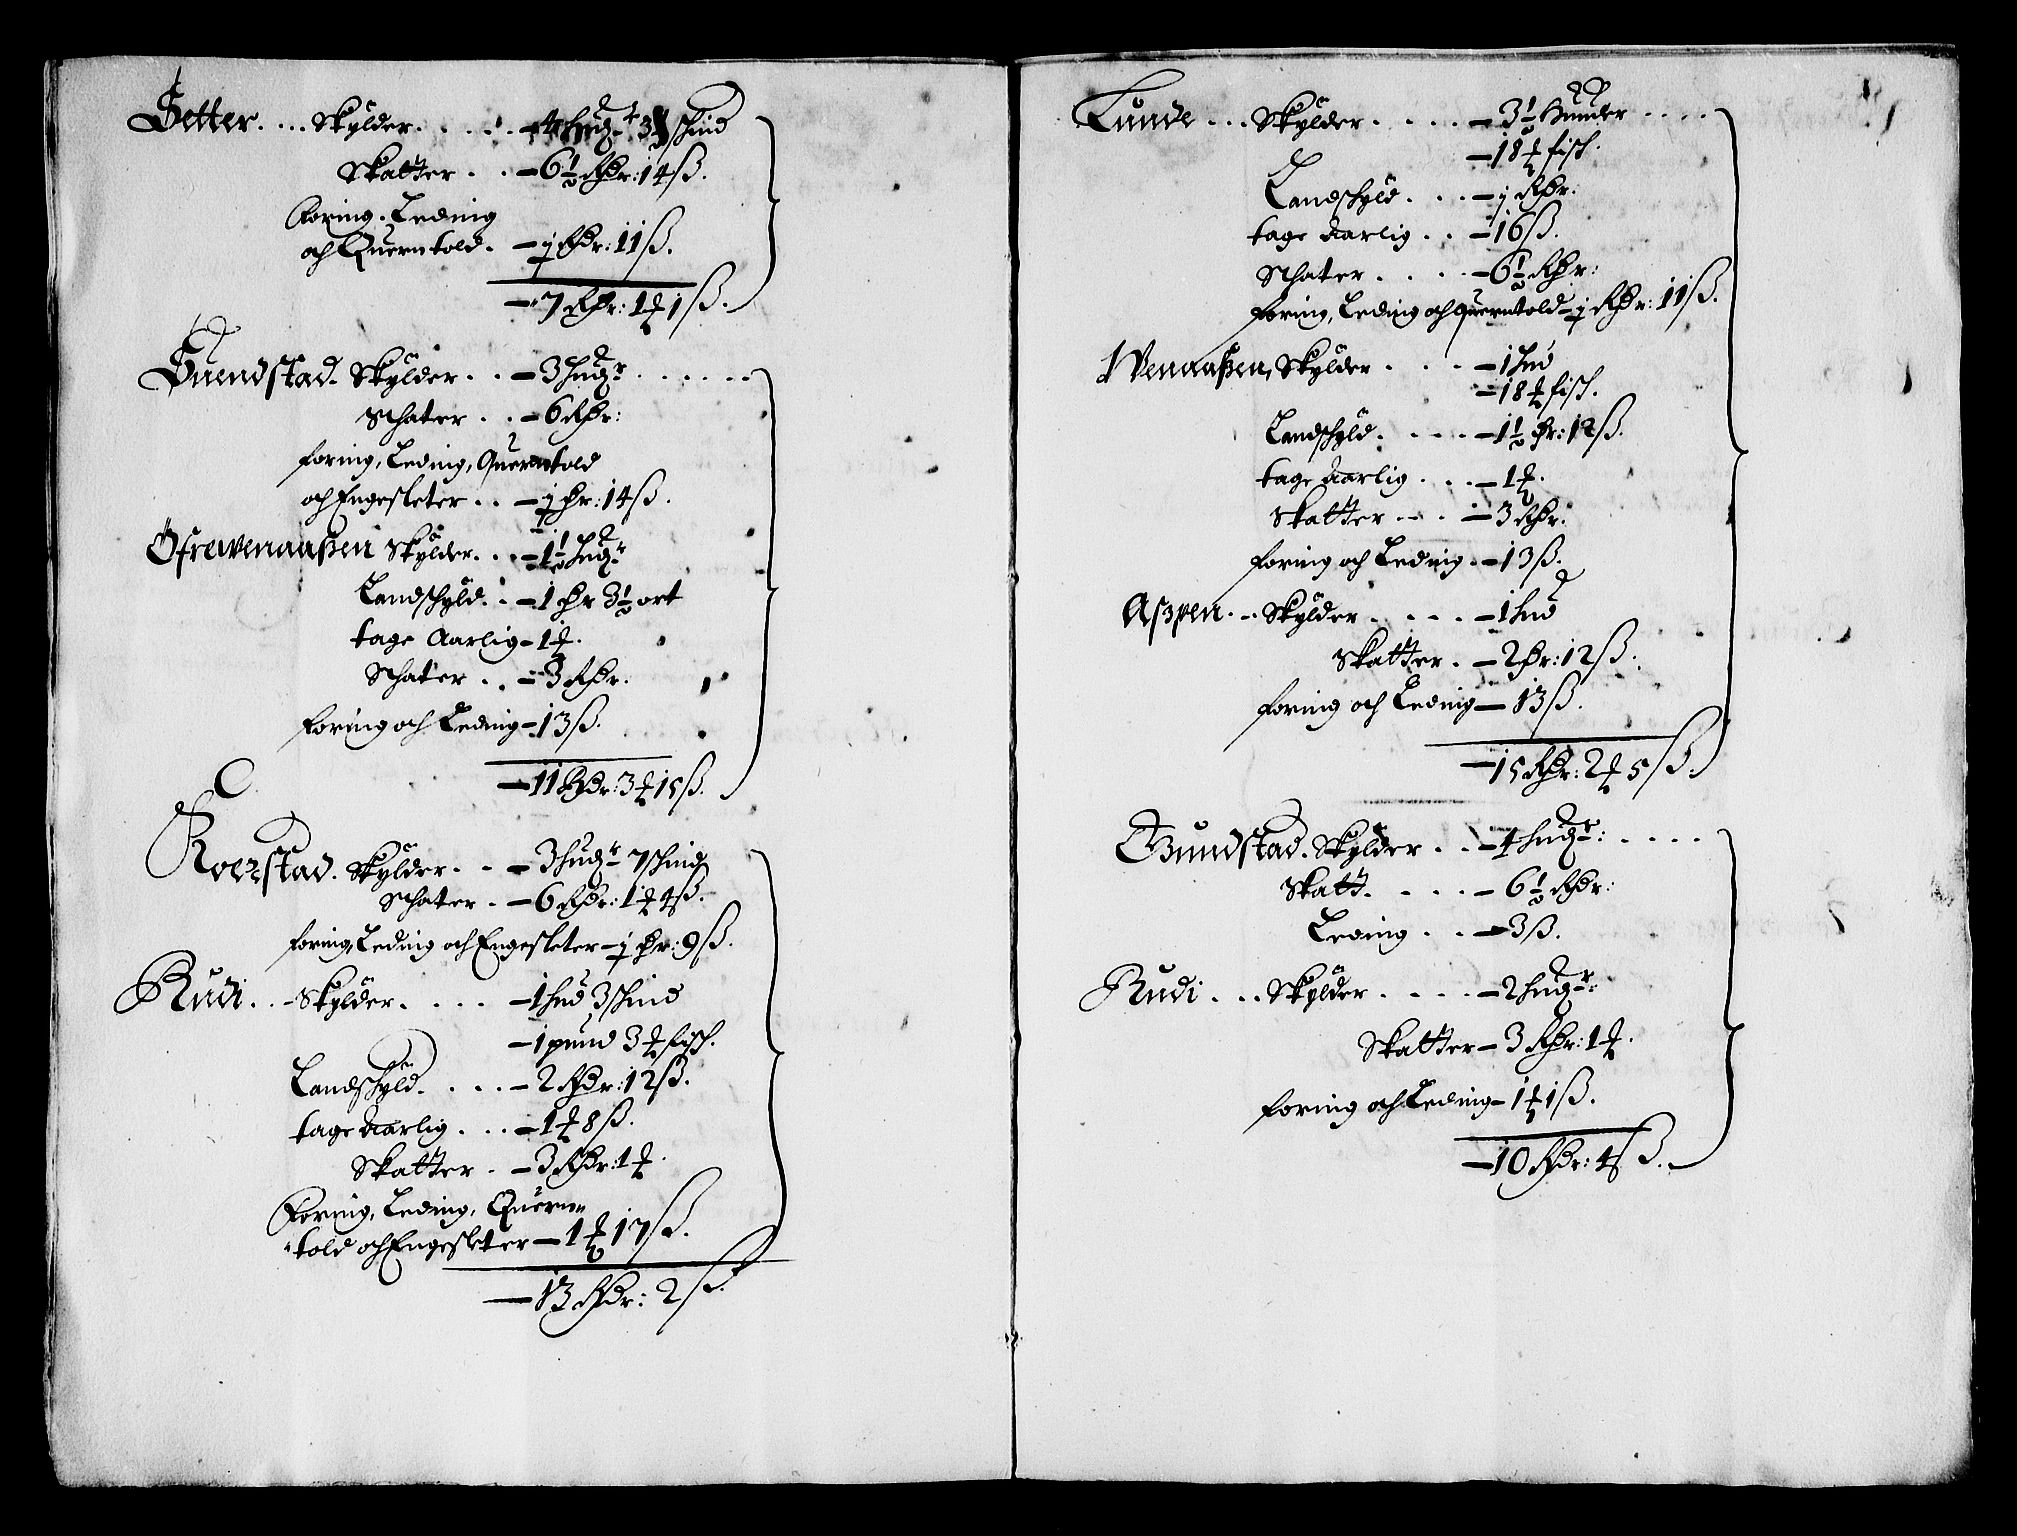 Setter. ... Skylder. . . . . - 4 hudr 3 schind
Skatter . . - 6½ Rdr: 14 ß.
Foring, Leding
och Querntold. - j Rdr: 11 ß.
- 7 Rdr: 1 ℔ 1 ß.
Suendstad. Skylder. . . - 3 hudr . . . . .
Schater . . - 6 Rdr:
foring, Leding, Querntold
och Engesleter . . - j dr: 14 ß.
Ofrewenaaßen Skylder. . . - 1½ hudr
Landschyld. . . - 1 dr 3½ ort
tage Aarlig - 1 ℔.
Schater . . - 3 Rdr.
foring och Leding - 13 ß.
- 11 Rdr: 3 ℔ 15 ß.
Roerstad. Skylder. . . - 3 hudr 7 schind
Schater . - 6 Rdr: 1 ℔ 4 ß.
foring, Leding och Engesleter - j dr: 9 ß.
Rudi. . . - Skylder. . . . . - 1 hud 3 schind
- 1 pund 3 ℔ fisch.
Landschyld. . . . . - 2 Rdr: 12 ß.
tage Aarlig . . . - 1 ℔ 8 ß.
Skatter . - 3 Rdr: 1 ℔.
Foring, Leding, Quern=
=told och Engesletter - 1 ℔ 17 ß.
- 13 Rdr: 2 ß.
Lunde . . . Skylder. . . . . - 3½ Hunder . . . .
- 18 ℔ fisch.
Landschyld. . . . - j Rdr:
tage Aarlig . . - 16 ß.
Schater . . . . - 6½ Rdr:
foring, Leding och Querntold - j Rdr: 11 ß.
Wenaaßen, Skylder . . . . - 1 Hud
- 18 ℔ fisch.
Landschyld. . . . . - 1½ dr: 12 ß.
tage Aarlig . . . - 1 ℔.
Skatter . . . - 3 Rdr.
foring och Leding . - 13 ß.
Aspen. . . Skylder . . . . . - 1 hud
Skatter . - 2 dr: 12 ß.
foring och Leding - 13 ß.
- 15 Rdr: 2 ℔ 5 ß.
Gundstad. Skylder . . - 4 hudr: . . . .
Skatt. . . . . - 6½ Rdr:
Leding . . - 3 ß.
Rudi . . . Skylder . . . . - 2 hudr:
Skatter - 3 Rdr: 1 ℔.
foring och Leding - 1 ℔ 1 ß.
- 10 Rdr: 4 ß.